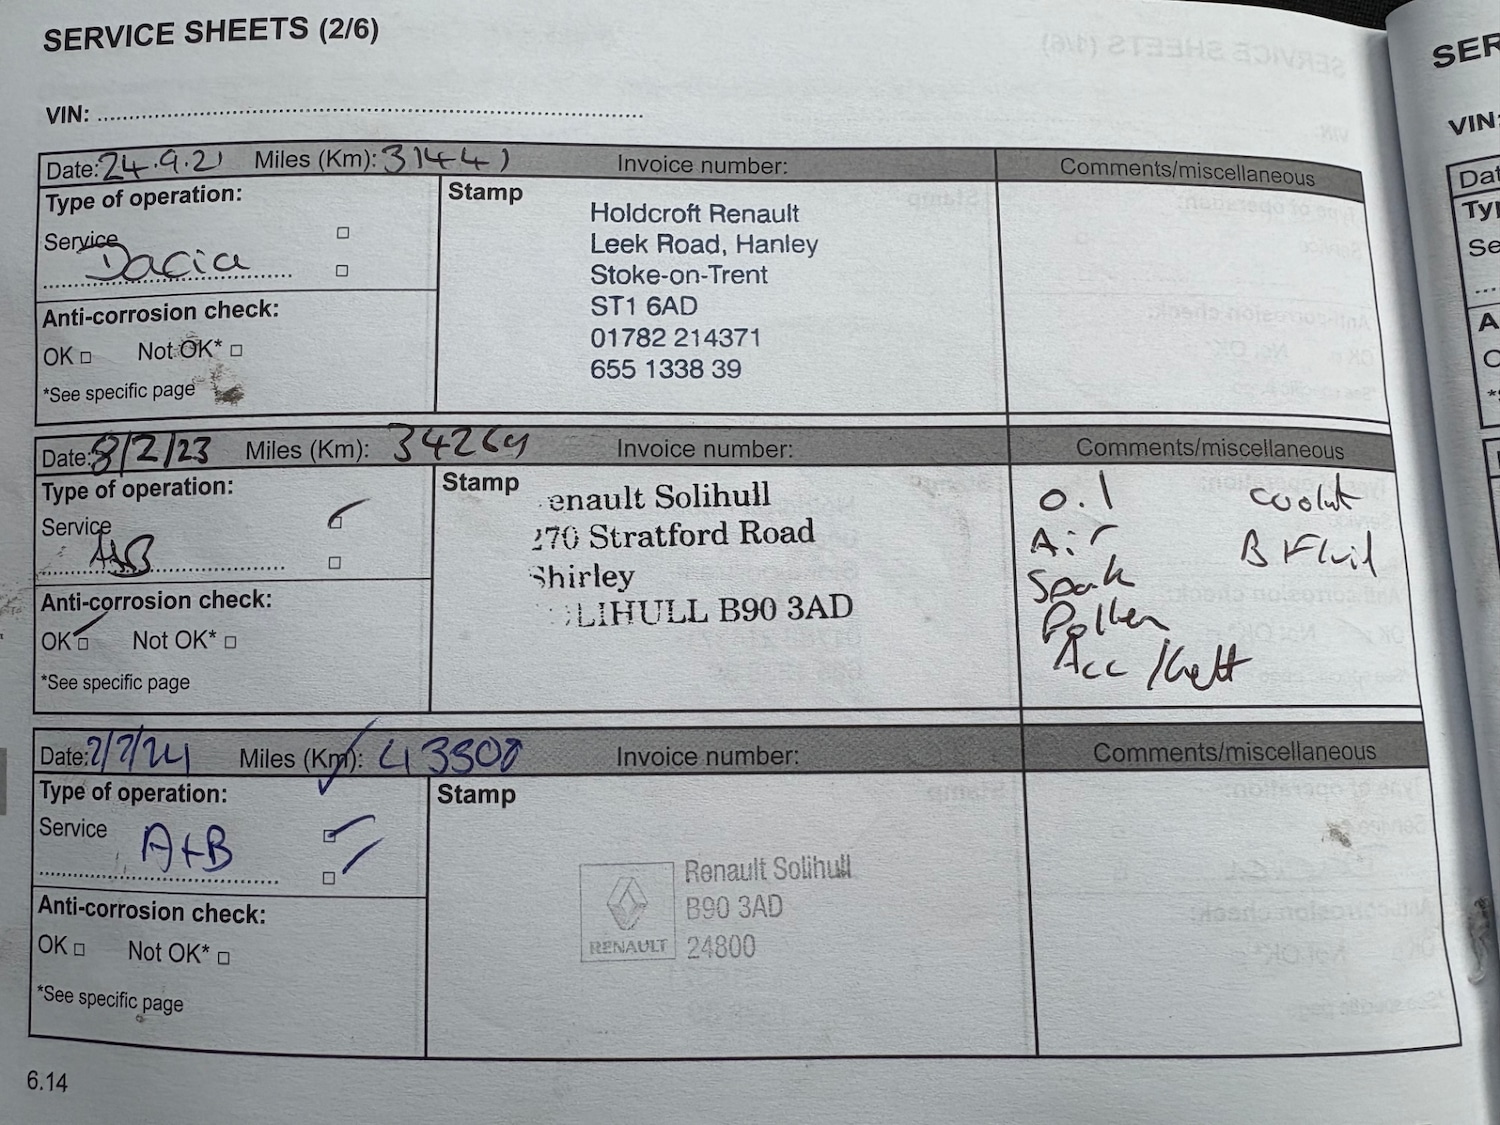 SERVICE SHEETS (2/6)
VIN:
Date: 24.9.21 Miles (Km): 31441 Invoice number: Comments/miscellaneous
Type of operation:
Service
Dacia
Anti-corrosion check:
OK □ Not OK* □
*See specific page
Stamp
Holdcroft Renault
Leek Road, Hanley
Stoke-on-Trent
ST1 6AD
01782 214371
655 1338 39
Date: 8/2/23 Miles (Km): 34269 Invoice number: Comments/miscellaneous
Type of operation:
Service
A+B
Anti-corrosion check:
OK □ Not OK* □
*See specific page
Stamp
enault Solihull
270 Stratford Road
Shirley
LIHULL B90 3AD
Oil
Air
Spark
Pollen
Acc /
Coolnt
B Fluid
Date: 2/2/24 Miles (Km): 43300 Invoice number: Comments/miscellaneous
Type of operation:
Service
A+B
Anti-corrosion check:
OK □ Not OK* □
*See specific page
Stamp
RENAULT
Renault Solihull
B90 3AD
24800
6.14
SER
VIN:
Dat
Ty
Se
A